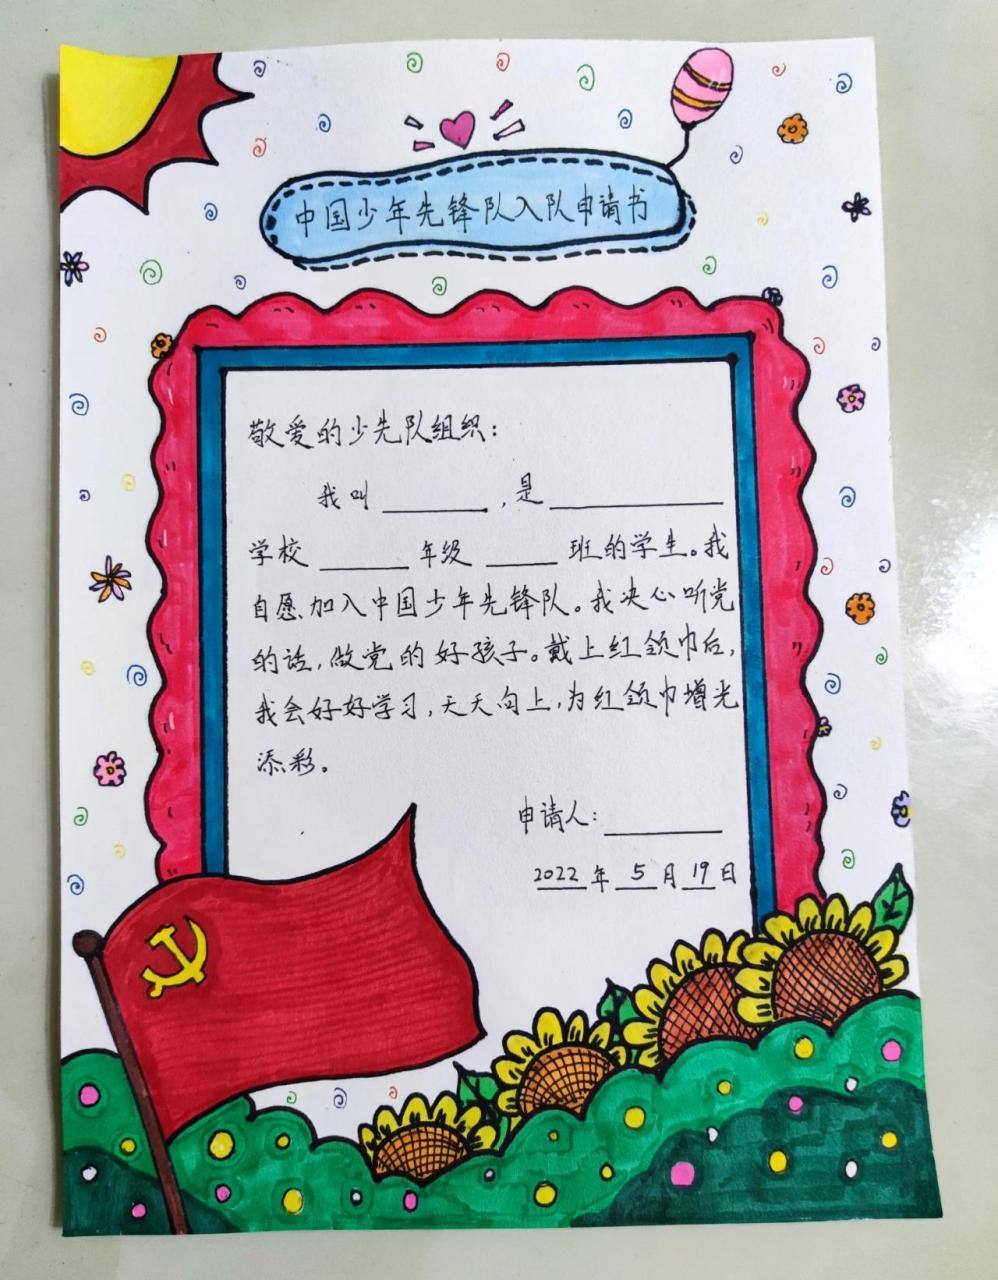 中国少年先锋队入队申请书
敬爱的少先队组织：
我叫______，是__________
学校_____年级____班的学生。我
自愿加入中国少年先锋队。我决心听党
的话，做党的好孩子。戴上红领巾后，
我会好好学习，天天向上，为红领巾增光
添彩。
申请人：______
2022年5月19日